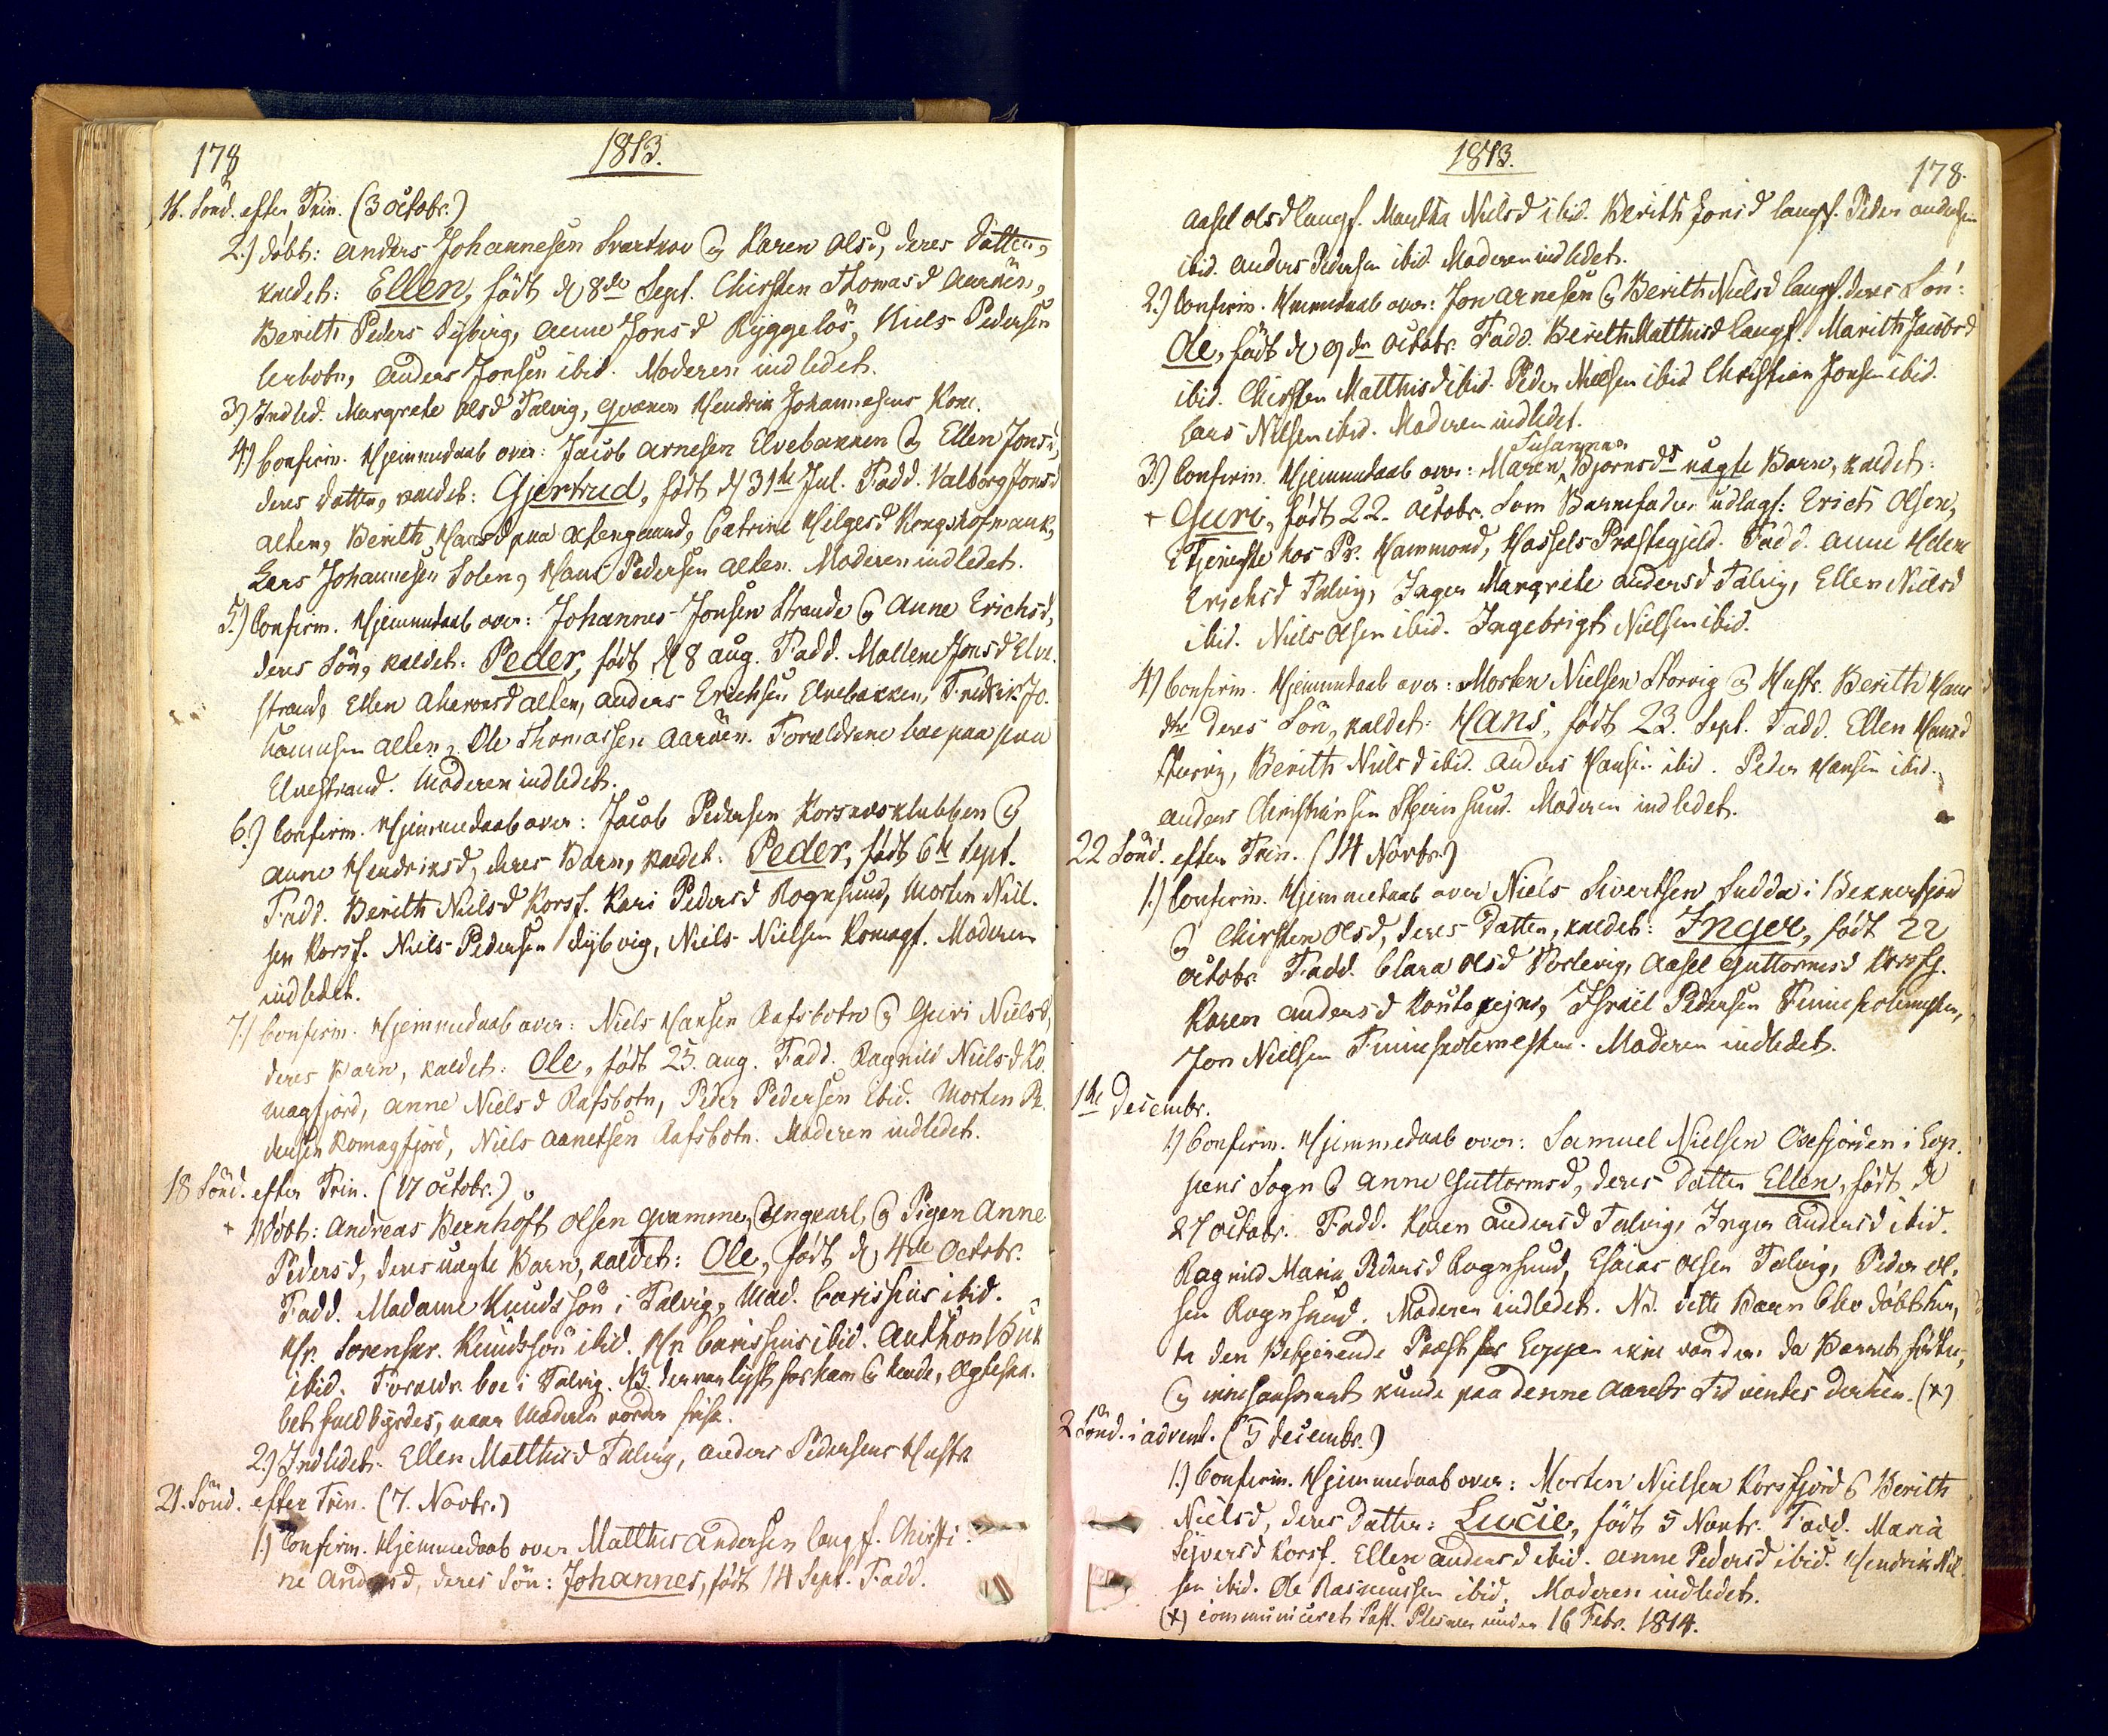 178
1813.
16. Sönd. efter Trin. (3 Octobr.)
2.) döbt: Anders Johannesen & Karen Olsd, deres Datter,
kaldet: Ellen, födt d 8de Sept. Chirsten Thomasd Aaröen,
Berith Peders Dybvig, Anne Jonsd Ryggelös, Niels Pedersen
Lerbotn, Anders Jonsen ibid. Moderen indledet.
3.) Indled. Margrete Olsd Talvig, Qvænen Hendrik Johannesens Kone.
4.) Confirm. Hjemmedaab over: Jacob Arnesen Elvebakken & Ellen Jonsd,
deres Datter, kaldet: Gjertrud, födt d 31te Jul. Fadd. Valborg Jonsd
Alten, Berith Hansd paa Altengaard, Catrine Helgesd Kongshofmark,
Lars Johannesen Solen, Hans Pedersen Alten. Moderen indledet.
5.) Confirm. Hjemmedaab over: Johannes Jonsen Strand & Anne Erichsd,
deres Sön, kaldet: Peder, födt d 8 Aug. Fadd. Mallene Jonsd Elve-
strand, Ellen Aheronsd Alten, Anders Erichsen Elvebakken, Fredrik Jo-
hannesen Alten, Ole Thomassen Aaröen. Forældrene boe paa
Elvestrand. Moderen indledet.
6.) Confirm. Hjemmedaab over: Jacob Pedersen Korsnæsklubben &
Anne Hendriksd, deres Barn, kaldet: Peder, födt 6te Sept.
Fadd. Berith Nielsd Korsf. Kari Pedersd Rognsund, Morten Niel-
sen Korsf. Niels Pedersen Dybvig, Niels Nielsen Komagf. Moderen
indledet.
7.) Confirm. Hjemmedaab over: Niels Hansen Rafsbotn & Guri Nielsd,
deres Barn, kaldet: Ole, födt 25. Aug. Fadd. Ragnild Nielsd Ko-
magfjord, Anne Nielsd Rafsbotn, Peder Pedersen ibid. Morten Pe-
dersen Komagfjord, Niels Aanetsen Rafsbotn. Moderen indledet.
18 Sönd. efter Trin. (17 Octobr.)
+ 1) döbt: Andreas Bernhoft Olsen Qvamme, Ungkarl, & Pigen Anne
Pedersd, deres uægte Barn, kaldet: Ole, födt d 4de Octobr.
Fadd. Madame Knudssön i Talvig, Mad. Carissius ibid.
Hr. Sorenskr. Knudssön ibid. Hr. Carissius ibid. Anthon Buk
ibid. Forældr. boe i Talvig. NB. der var lyst for ham & hende, Ægteska-
bet fuldbyrdes, naar Moderen vorder frisk.
2.) Indledet: Ellen Matthisd Talvig, Anders Pedersens Hustr.
21. Sönd. efter Trin. (7. Novbr.)
1.) Confirm. Hjemmedaab over Matthis Andersen Langf. Chirsti-
ne Andersd, deres Sön: Johannes, födt 14 Sept. Fadd.
1813.
178.
Aasel Olsd Langf. Martha Nielsd ibid. Berith Jonsd Langf. Peder Andersen
ibid. Anders Pedersen ibid. Moderen indledet.
2.) Confirm. Hjemmedaab over: Jon Arnesen & Berith Nielsd Langf. deres Sön:
Ole, födt d 9de Octobr. Fadd. Berith Matthisd Langf. Marith Jacobsd
ibid. Chirsten Matthisd ibid. Peder Nielsen ibid. Christian Jonsen ibid.
Lars Nilsen ibid. Moderen indledet.
Susanna
3.) Confirm. Hjemmedaab over: Maren Bjornsds uægte Barn, kaldet:
+ Guri, födt 22. Octobr. Som Barnefader udlagt: Erich Olsen,
i Tjeneste hos Pr. Hammond, Hassels Præstegjeld. Fadd. Anne Helene
Erichsd Talvig, Inger Margrete Andersd Talvig, Ellen Nielsd
ibid. Niels Olsen ibid. Ingebrigt Nielsen ibid.
4) Confirm. Hjemmedaab over: Morten Nielsen Storvig & Hustr. Berith Hans
dtr. deres Sön, kaldet: Hans, födt 23. Sept. Fadd. Ellen Hansd
Storvig, Berith Nielsd ibid. Anders Hansen ibid. Peder Hansen ibid.
Anders Christiansen Stjernsund. Moderen indledet.
22 Sönd. efter Trin. (14 Novbr.)
1.) Confirm. Hjemmedaab over Niels Sivertsen Sudda i Bekkerfjord
& Chirsten Olsd, deres Datter, kaldet: Inger, födt 22
Octobr. Fadd. Clara Olsd Torlevig, Aasel Guttormsd Korsfj.
Karen Andersd Koutokejno, Israel Pedersen Finneskolemester,
Jon Nielsen Finneskolemester. Moderen indledet.
1te Decembr.
1.) Confirm. Hjemmedaab over: Samuel Nielsen Oxefjorden i Lop-
pens Sogn & Anne Guttormsd, deres Datter Ellen, födt d
27 Octobr. Fadd. Karen Andersd Talvig, Inger Andersd ibid.
Ragnild Maria Pedersd Rognsund, Esaias Olsen Talvig, Peder Ol-
sen Rognsund. Moderen indledet. NB. dette Barn blev döbt her,
da den Betjenende Præst for Loppen ikke var der da Barnet födtes,
& ikke kunde paa denne Aarets Tid ventes derhen. (x)
2 Sönd. i Advent. (5 Decembr.)
1.) Confirm. Hjemmedaab over: Morten Nielsen Korsfjord & Berith
Nielsd, deres Datter: Lucie, födt 5 Novbr. Fadd. Maria
Sijversd Korsf. Ellen Andersd ibid. Anne Pedersd ibid. Hendrik Niel-
sen ibid. Ole Rasmussen ibid. Moderen indledet.
(x) communiceret Past. under 16 Febr. 1814.